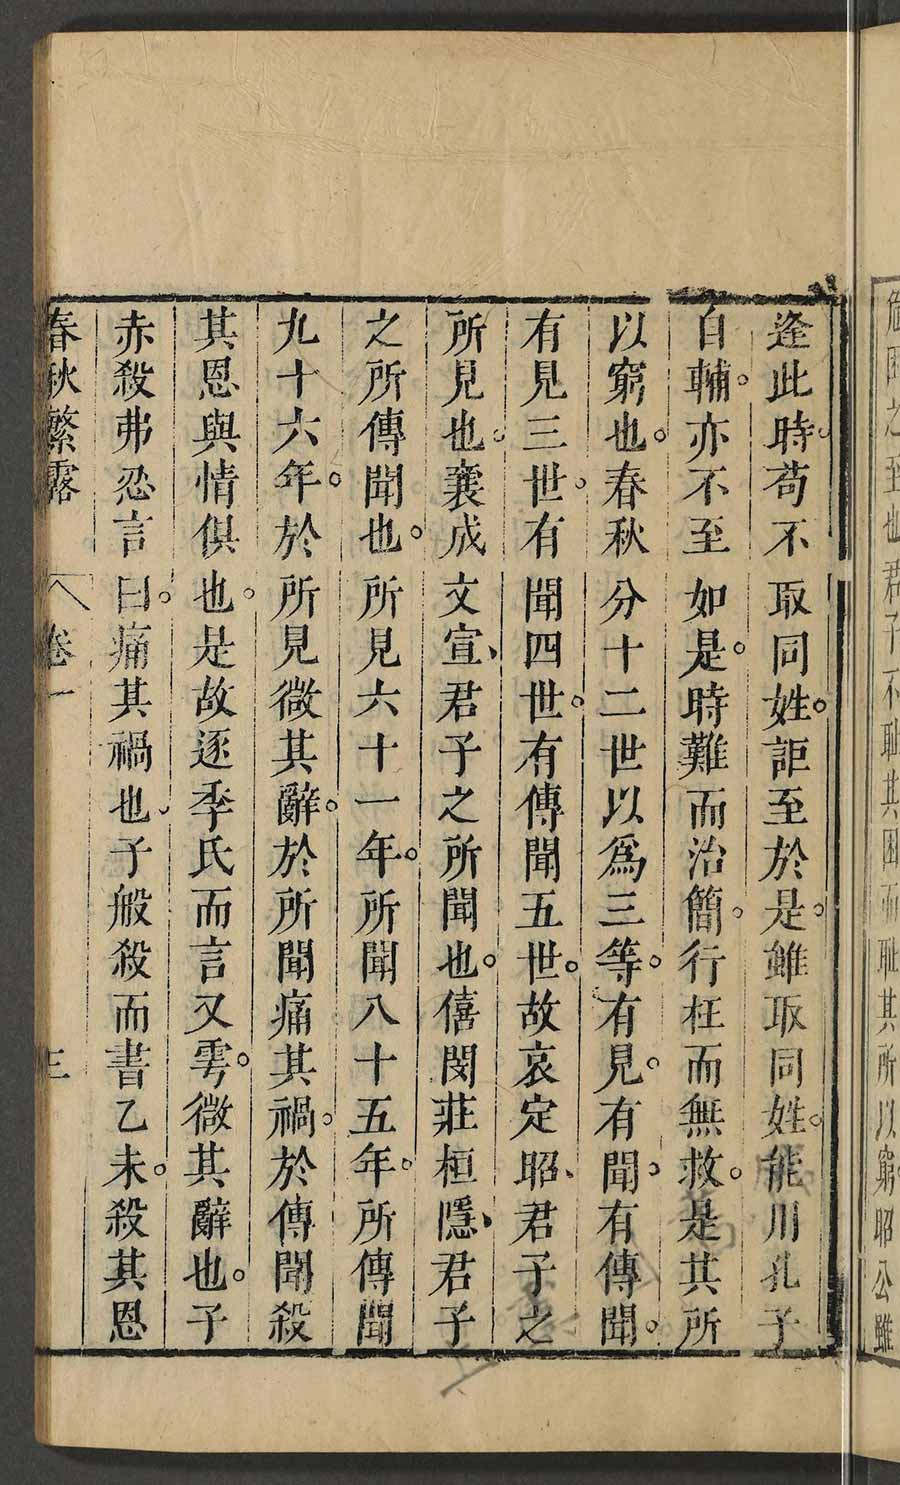 危困之至也君子不恥其困而恥其所以窮。昭公雖
逢此時。苟不取同姓。詎至於是。雖取同姓。能用孔子
自輔。亦不至如是。時難而治簡。行枉而無救。是其所
以窮也。春秋分十二世以爲三等。有見。有聞。有傳聞。
有見三世。有聞四世。有傳聞五世。故哀定昭、君子之
所見也。襄成文宣、君子之所聞也。僖閔莊桓隱、君子
之所傳聞也。所見六十一年。所聞八十五年。所傳聞
九十六年。於所見微其辭。於所聞痛其禍。於傳聞殺
其恩與情俱也。是故逐季氏而言又雩。微其辭也。子
赤殺弗忍言曰。痛其禍也、子般殺而書乙未。殺其恩
春秋繁露 卷一 三